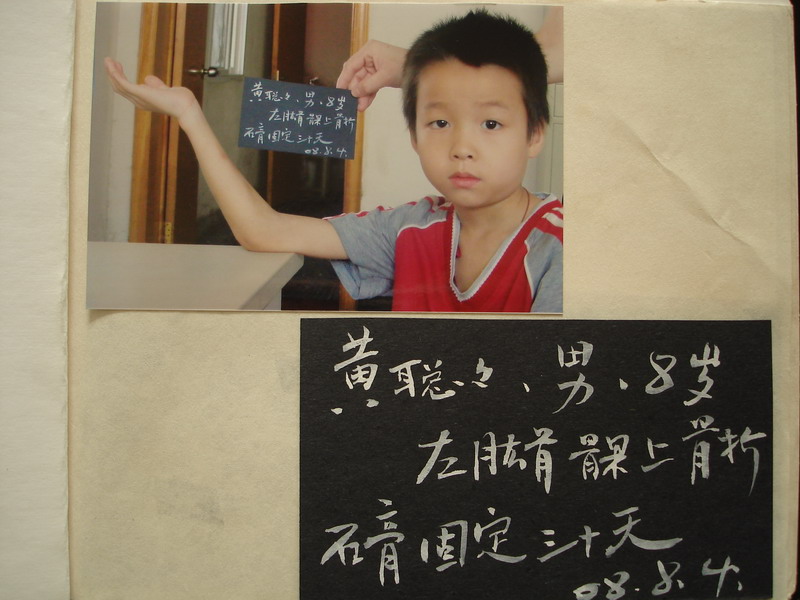 黄聪々、男、8岁
左肱骨髁上骨折
石膏固定三十天
08.8.4.
黄聪々、男、8岁
左肱骨髁上骨折
石膏固定三十天
08.8.4.